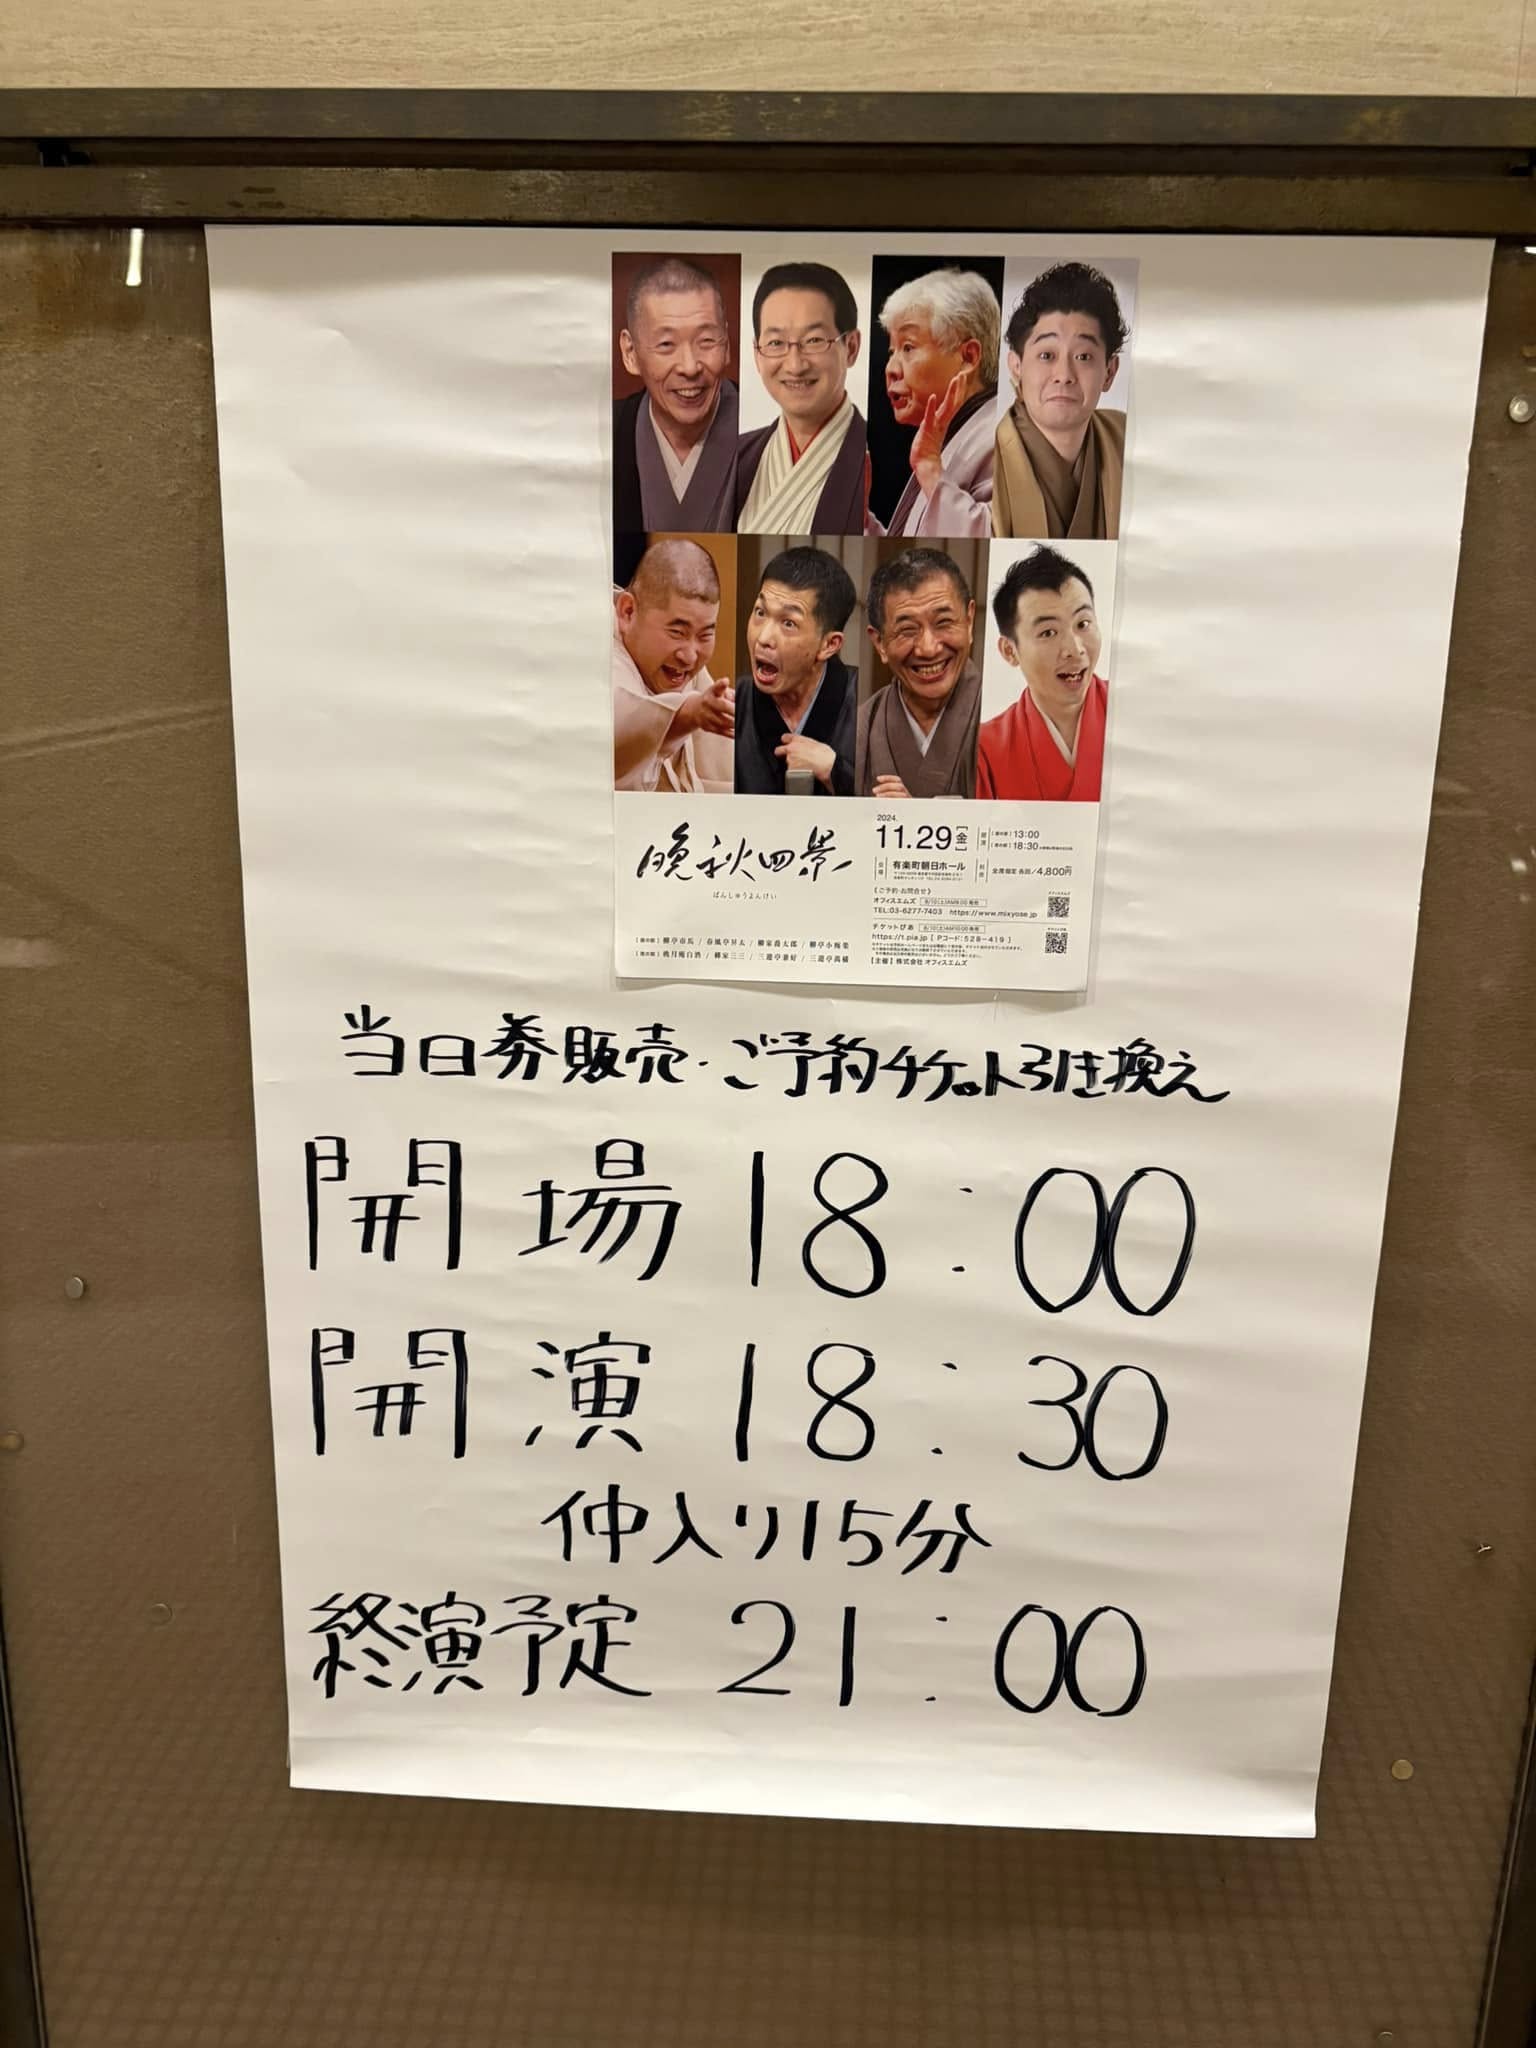 晩秋四景
ばんしゅうよんけい
2024.
11.29[金]
開演
[昼の部] 13:00
[夜の部] 18:30
会場
有楽町朝日ホール
料金
全席指定 各回/4,800円
《ご予約・お問合せ》
オフィスエムズ 8/10(土)AM9:00発売
TEL:03-6277-7403 https://www.mixyose.jp
オフィスエムズ
チケットぴあ 8/10(土)AM10:00発売
https://t.pia.jp [ Pコード:528-419 ]
チケットぴあ
【主催】株式会社 オフィスエムズ
[昼の部] 柳亭市馬 / 春風亭昇太 / 柳家喬太郎 / 柳亭小痴楽
[夜の部] 桃月庵白酒 / 柳家三三 / 三遊亭兼好 / 三遊亭萬橘
当日券販売・ご予約チケット引き換え
開場 18:00
開演 18:30
仲入り15分
終演予定 21:00